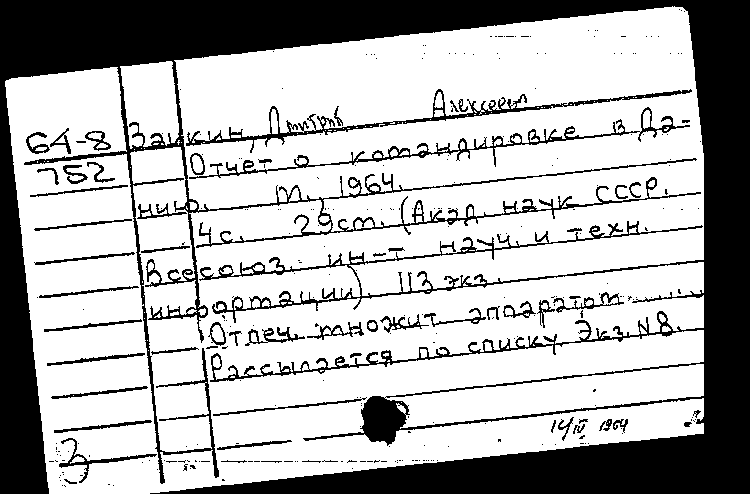 64-8 Заикин, Дмитрий Алексеевич
752 Отчет о командировке в Да-
нию. М., 1964.
4с. 29см. (Акад. наук СССР.
Всесоюз. ин-т науч. и техн.
информации). 113 экз.
Отпеч. множит. аппаратом
Рассылается по списку. Экз. N8.
3
14/IV 1964